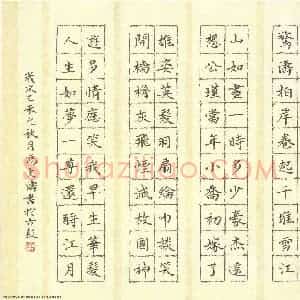 驚濤拍岸卷起千堆雪江
山如畫一時多少豪傑遙
想公瑾當年小喬初嫁了
雄姿英發羽扇綸巾談笑
間檣櫓灰飛煙滅故國神
遊多情應笑我早生華髮
人生如夢一尊還酹江月